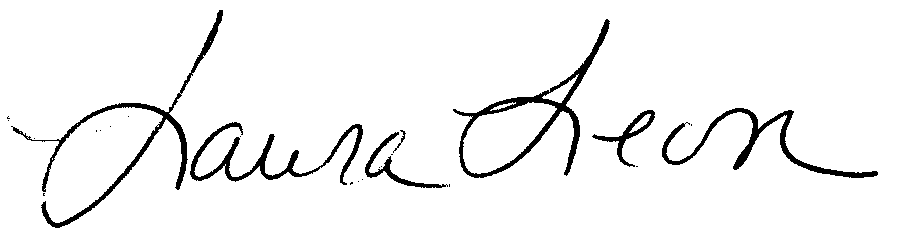 Laura Leon